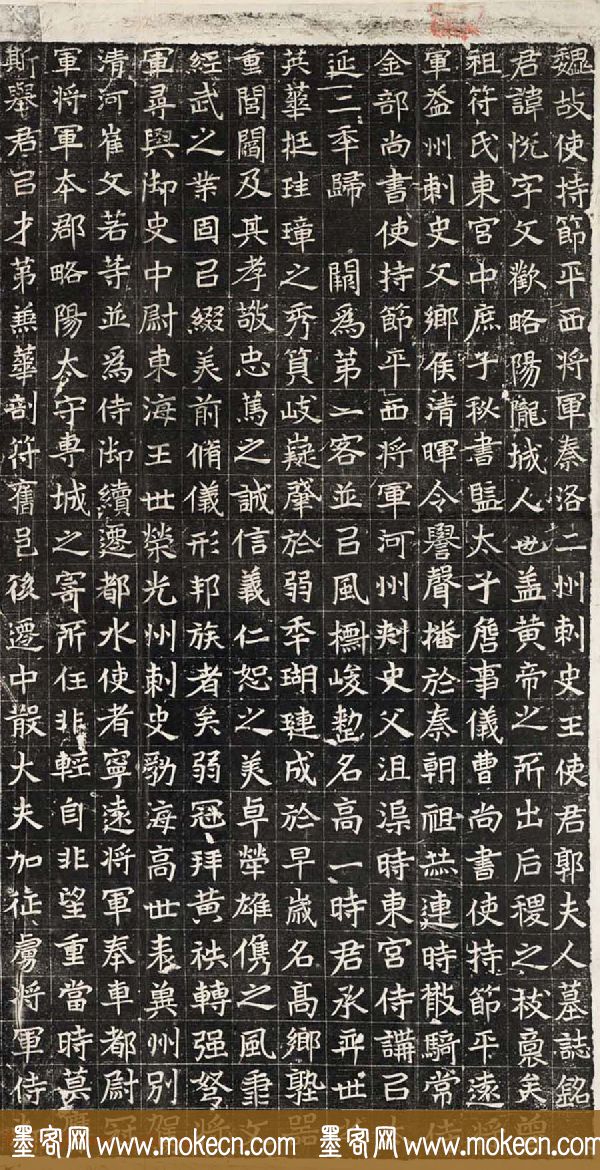 魏故使持節平西將軍秦洛二州刺史王使君郭夫人墓誌銘
君諱悅字文歡略陽隴城人也盖黃帝之所出后稷之枝裔矣
祖符氏東宮中庶子秘書監太子詹事儀曹尚書使持節平遠
軍益州刺史父鄉侯清暉令譽聲播於秦朝祖恭連時散騎常侍
金部尚書使持節平西將軍河州刾史父沮渠時東宮侍講召
延二秊歸 闕為第一客並召風櫄峻整名高一時君承弈世
英華挺珪璋之秀質岐嶷肇於弱秊瑚璉成於早嵗名高鄉塾器
重閭閻及其孝敬忠篤之誠信義仁恕之美卓犖雄儁之風肅
經武之業固召綴美前脩儀形邦族者矣弱冠拜黃袟轉强弩將
軍尋與御史中尉東海王世榮光州刺史勃海高世表兾州別駕
清河崔文若等並為侍御續遷都水使者寧遠將軍奉車都尉冠
軍將軍本郡略陽太守專城之寄所任非輕自非望重當時莫
斯舉君召才苐兼華剖符舊邑後遷中散大夫加征虜將軍侍
墨客网 www.mokecn.com 墨客网 www.mokecn.com 墨客网